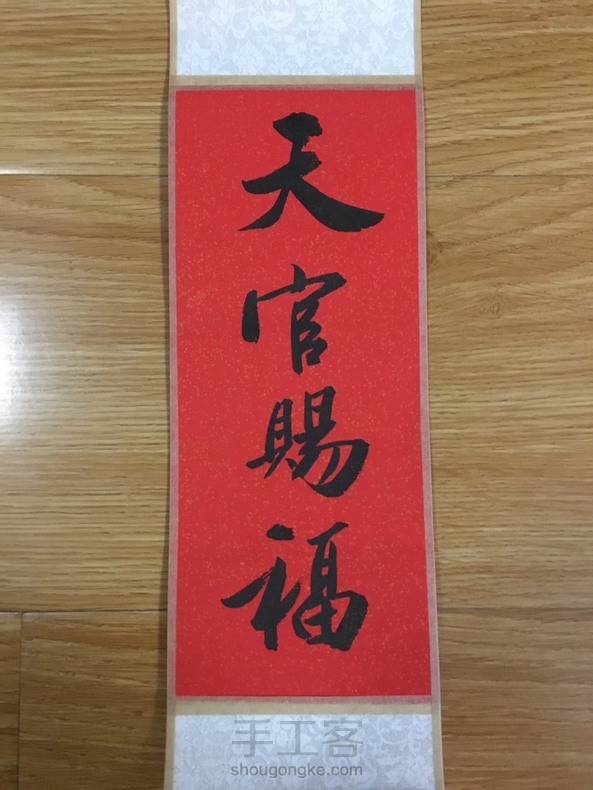 天官賜福
手工客
shougongke.com